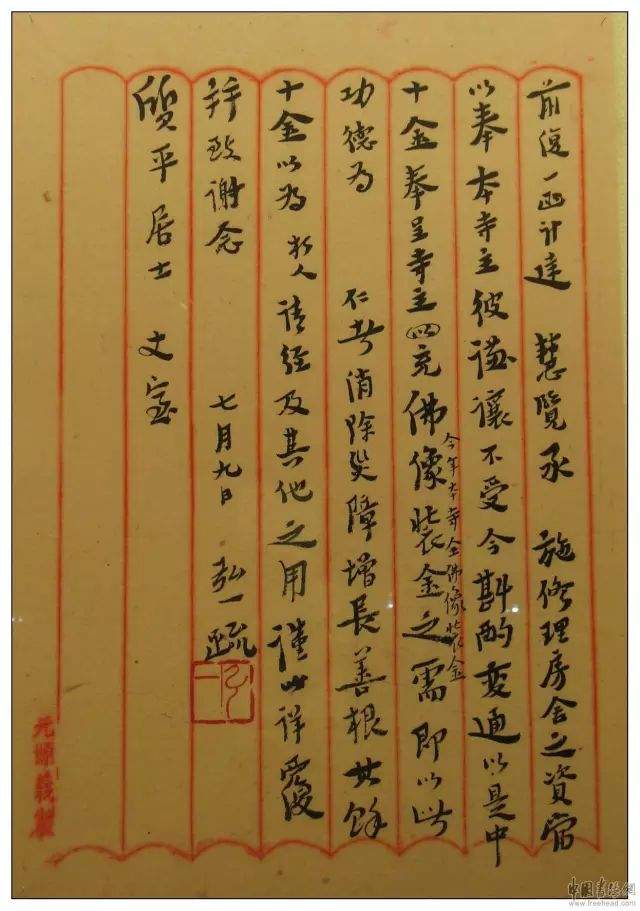 前復一函计達 慧覽承 施修理房舍之資當
以奉本寺主彼謙讓不受今斟酌变通以是中
十金奉呈寺主充佛像裝金之需即以此
今年本寺全佛像裝金
功德为 仁者消除災障增長善根其餘
十金以为 朽人請經及其他之用謹此详覆
并致謝念 七月九日 弘一疏
質平居士 丈室
弘一
義製
中国书法网
www.freehead.com